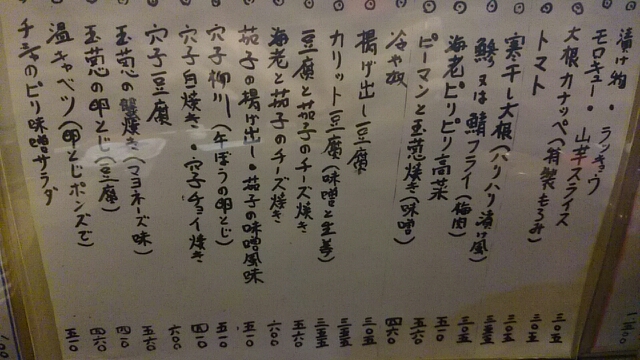 漬け物・ラッキョウ
モロキュー・山芋スライス 三〇五
大根カナッペ(特製もろみ) 三〇五
トマト 三〇五
寒干し大根(ハリハリ漬け風) 三五五
鯵又は鯖フライ(梅肉) 三〇五
海老ピリピリ高菜 五一〇
ピーマンと玉葱焼き(味噌) 五六〇
冷や奴 四六〇
揚げ出し豆腐 三〇五
カリット豆腐(味噌と生姜) 三五五
豆腐と茄子のチーズ焼き 五六〇
海老と茄子のチーズ焼き 六〇〇
茄子の揚げ出し・茄子の味噌風味 五一〇
穴子柳川(午ぼうの卵とじ) 五一〇
穴子白焼き・穴子チョイ焼き 四一〇
穴子豆腐 六〇〇
玉葱の蟹焼き(マヨネーズ味) 五六〇
玉葱の卵とじ(豆腐) 四一〇
温キャベツ(卵とじポンズで) 四六〇
チシャのピリ味噌サラダ 五一〇